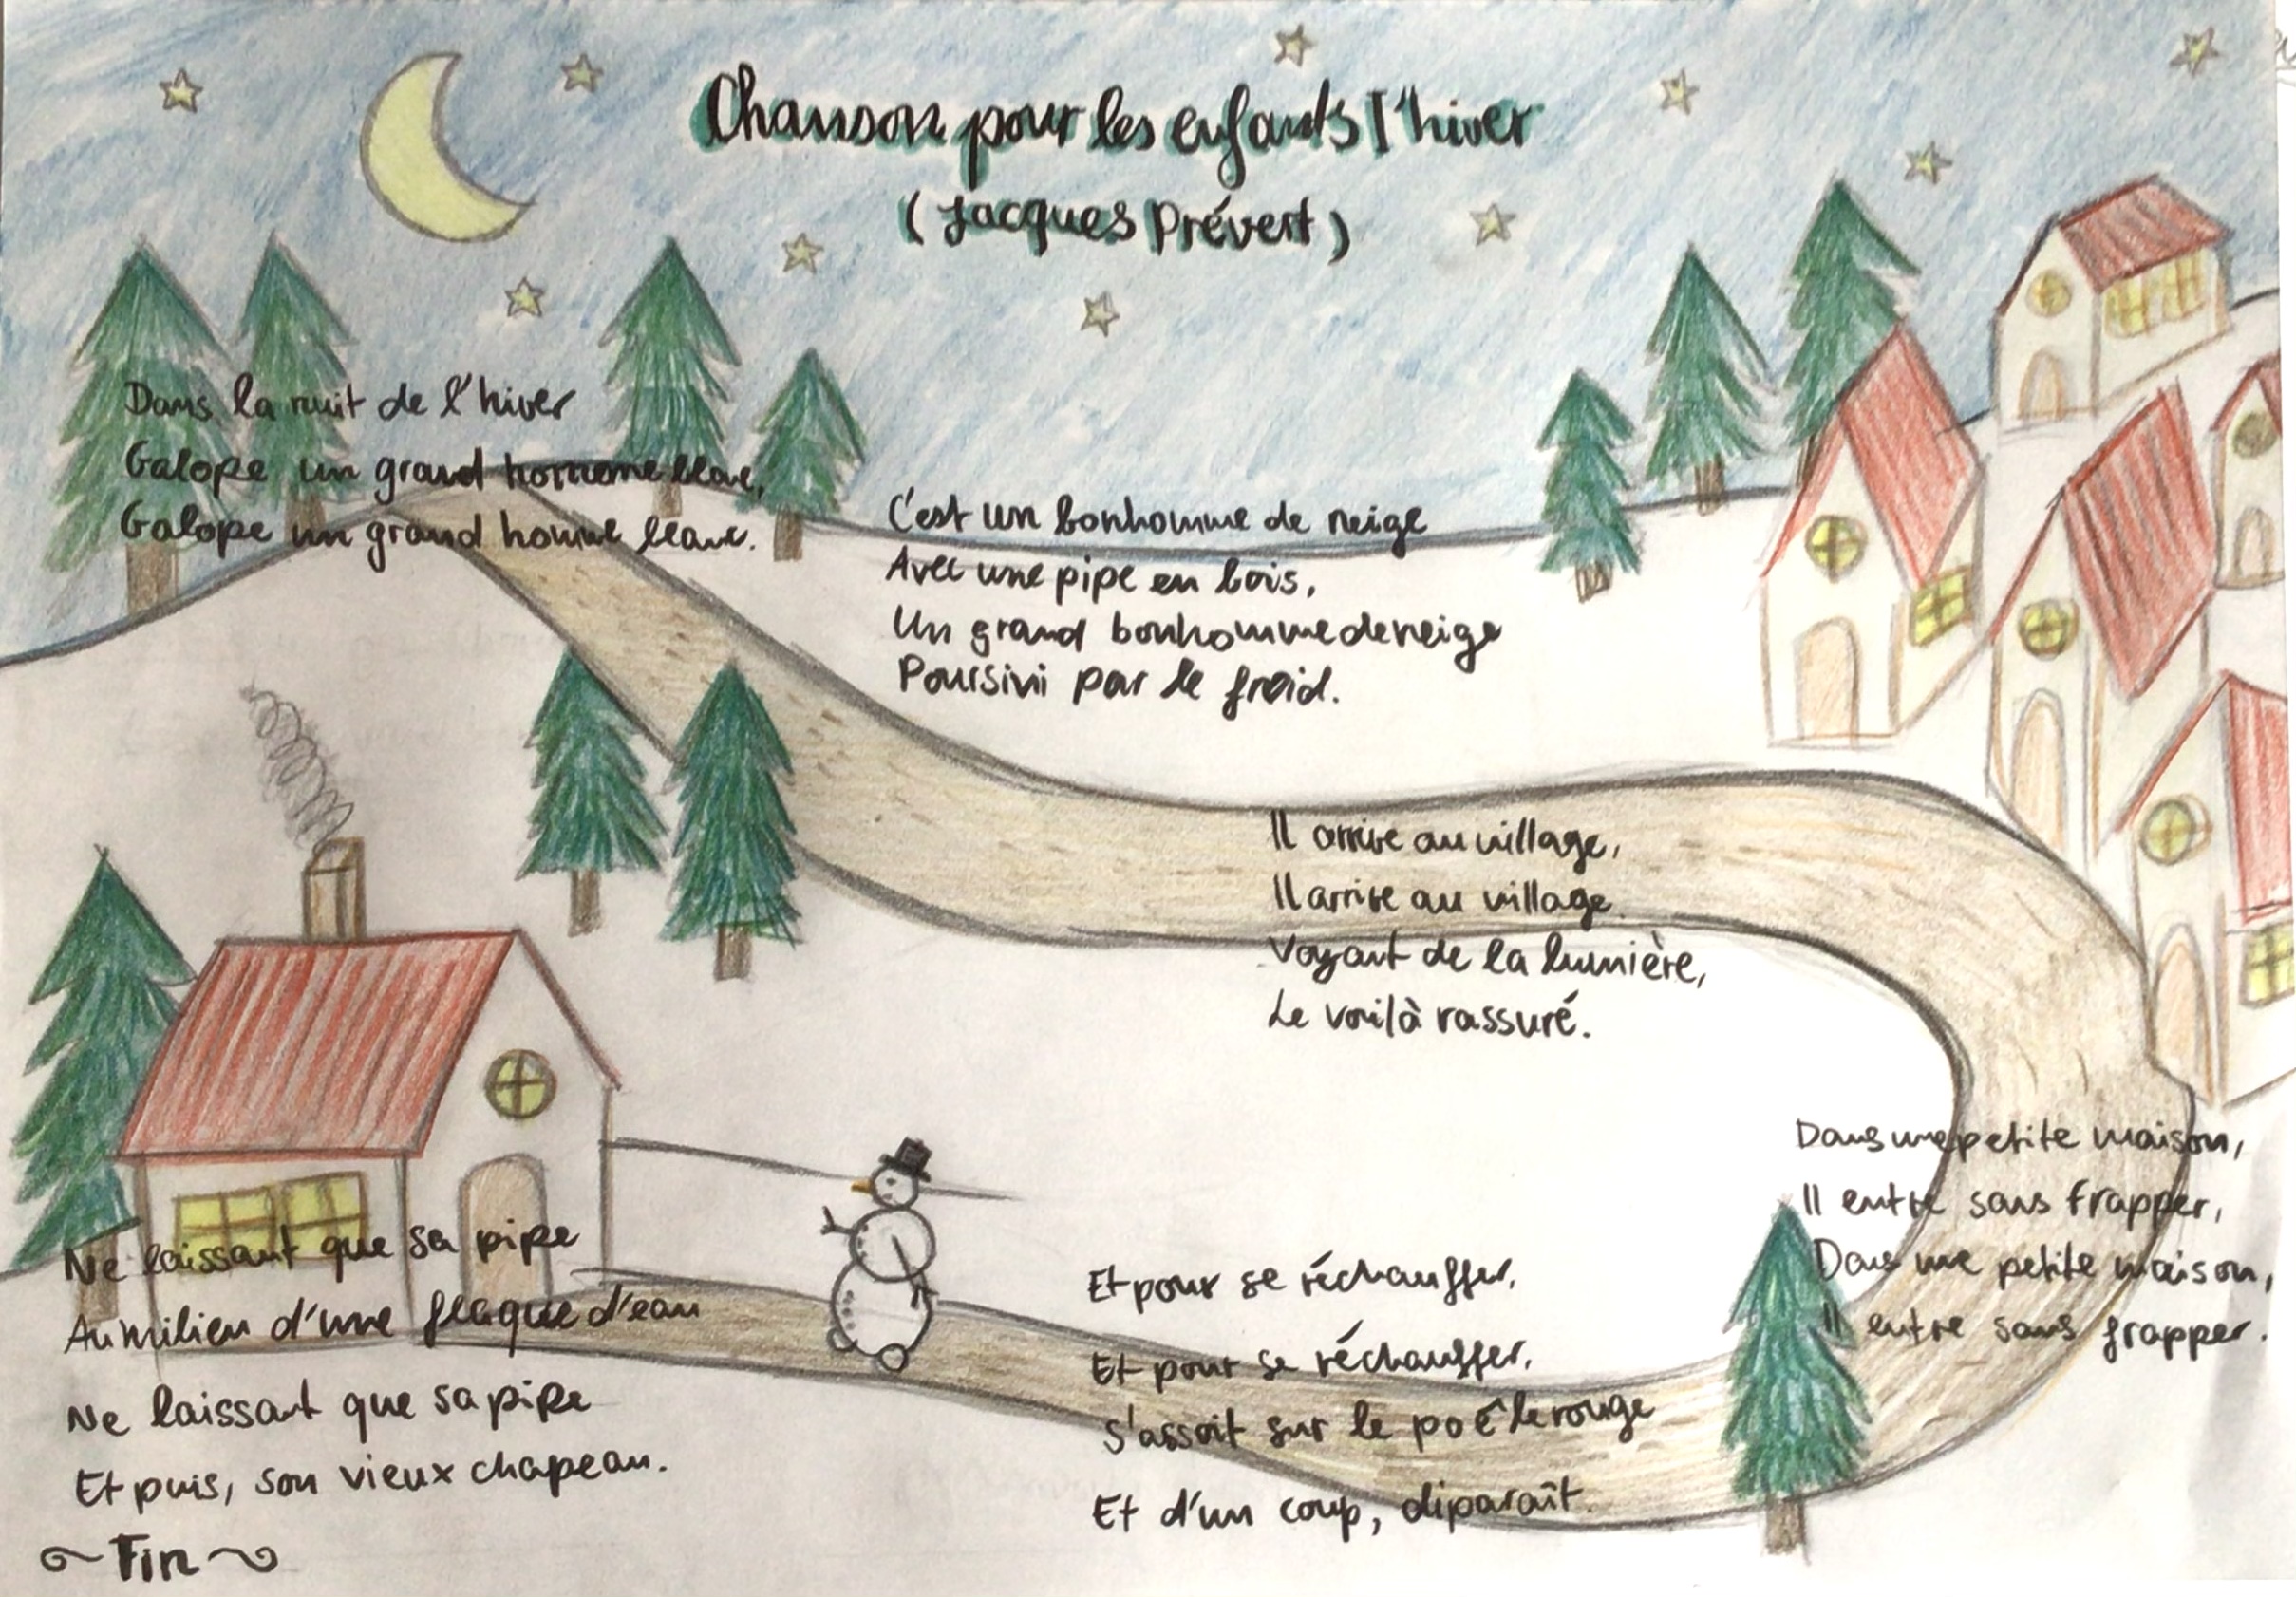 Chanson pour les enfants l'hiver
(Jacques Prévert)
Dans la nuit de l'hiver
Galope un grand homme blanc,
Galope un grand homme blanc.
C'est un bonhomme de neige
Avec une pipe en bois,
Un grand bonhomme de neige
Poursivi par le froid.
Il arrive au village,
Il arrive au village.
Voyant de la lumière,
Le voilà rassuré.
Dans une petite maison,
Il entre sans frapper,
Dans une petite maison,
Il entre sans frapper.
Et pour se réchauffer,
Et pour se réchauffer,
S'assoit sur le poêle rouge
Et d'un coup, diparaît.
Ne laissant que sa pipe
Au milieu d'une flaque d'eau
Ne laissant que sa pipe
Et puis, son vieux chapeau.
~ Fin ~